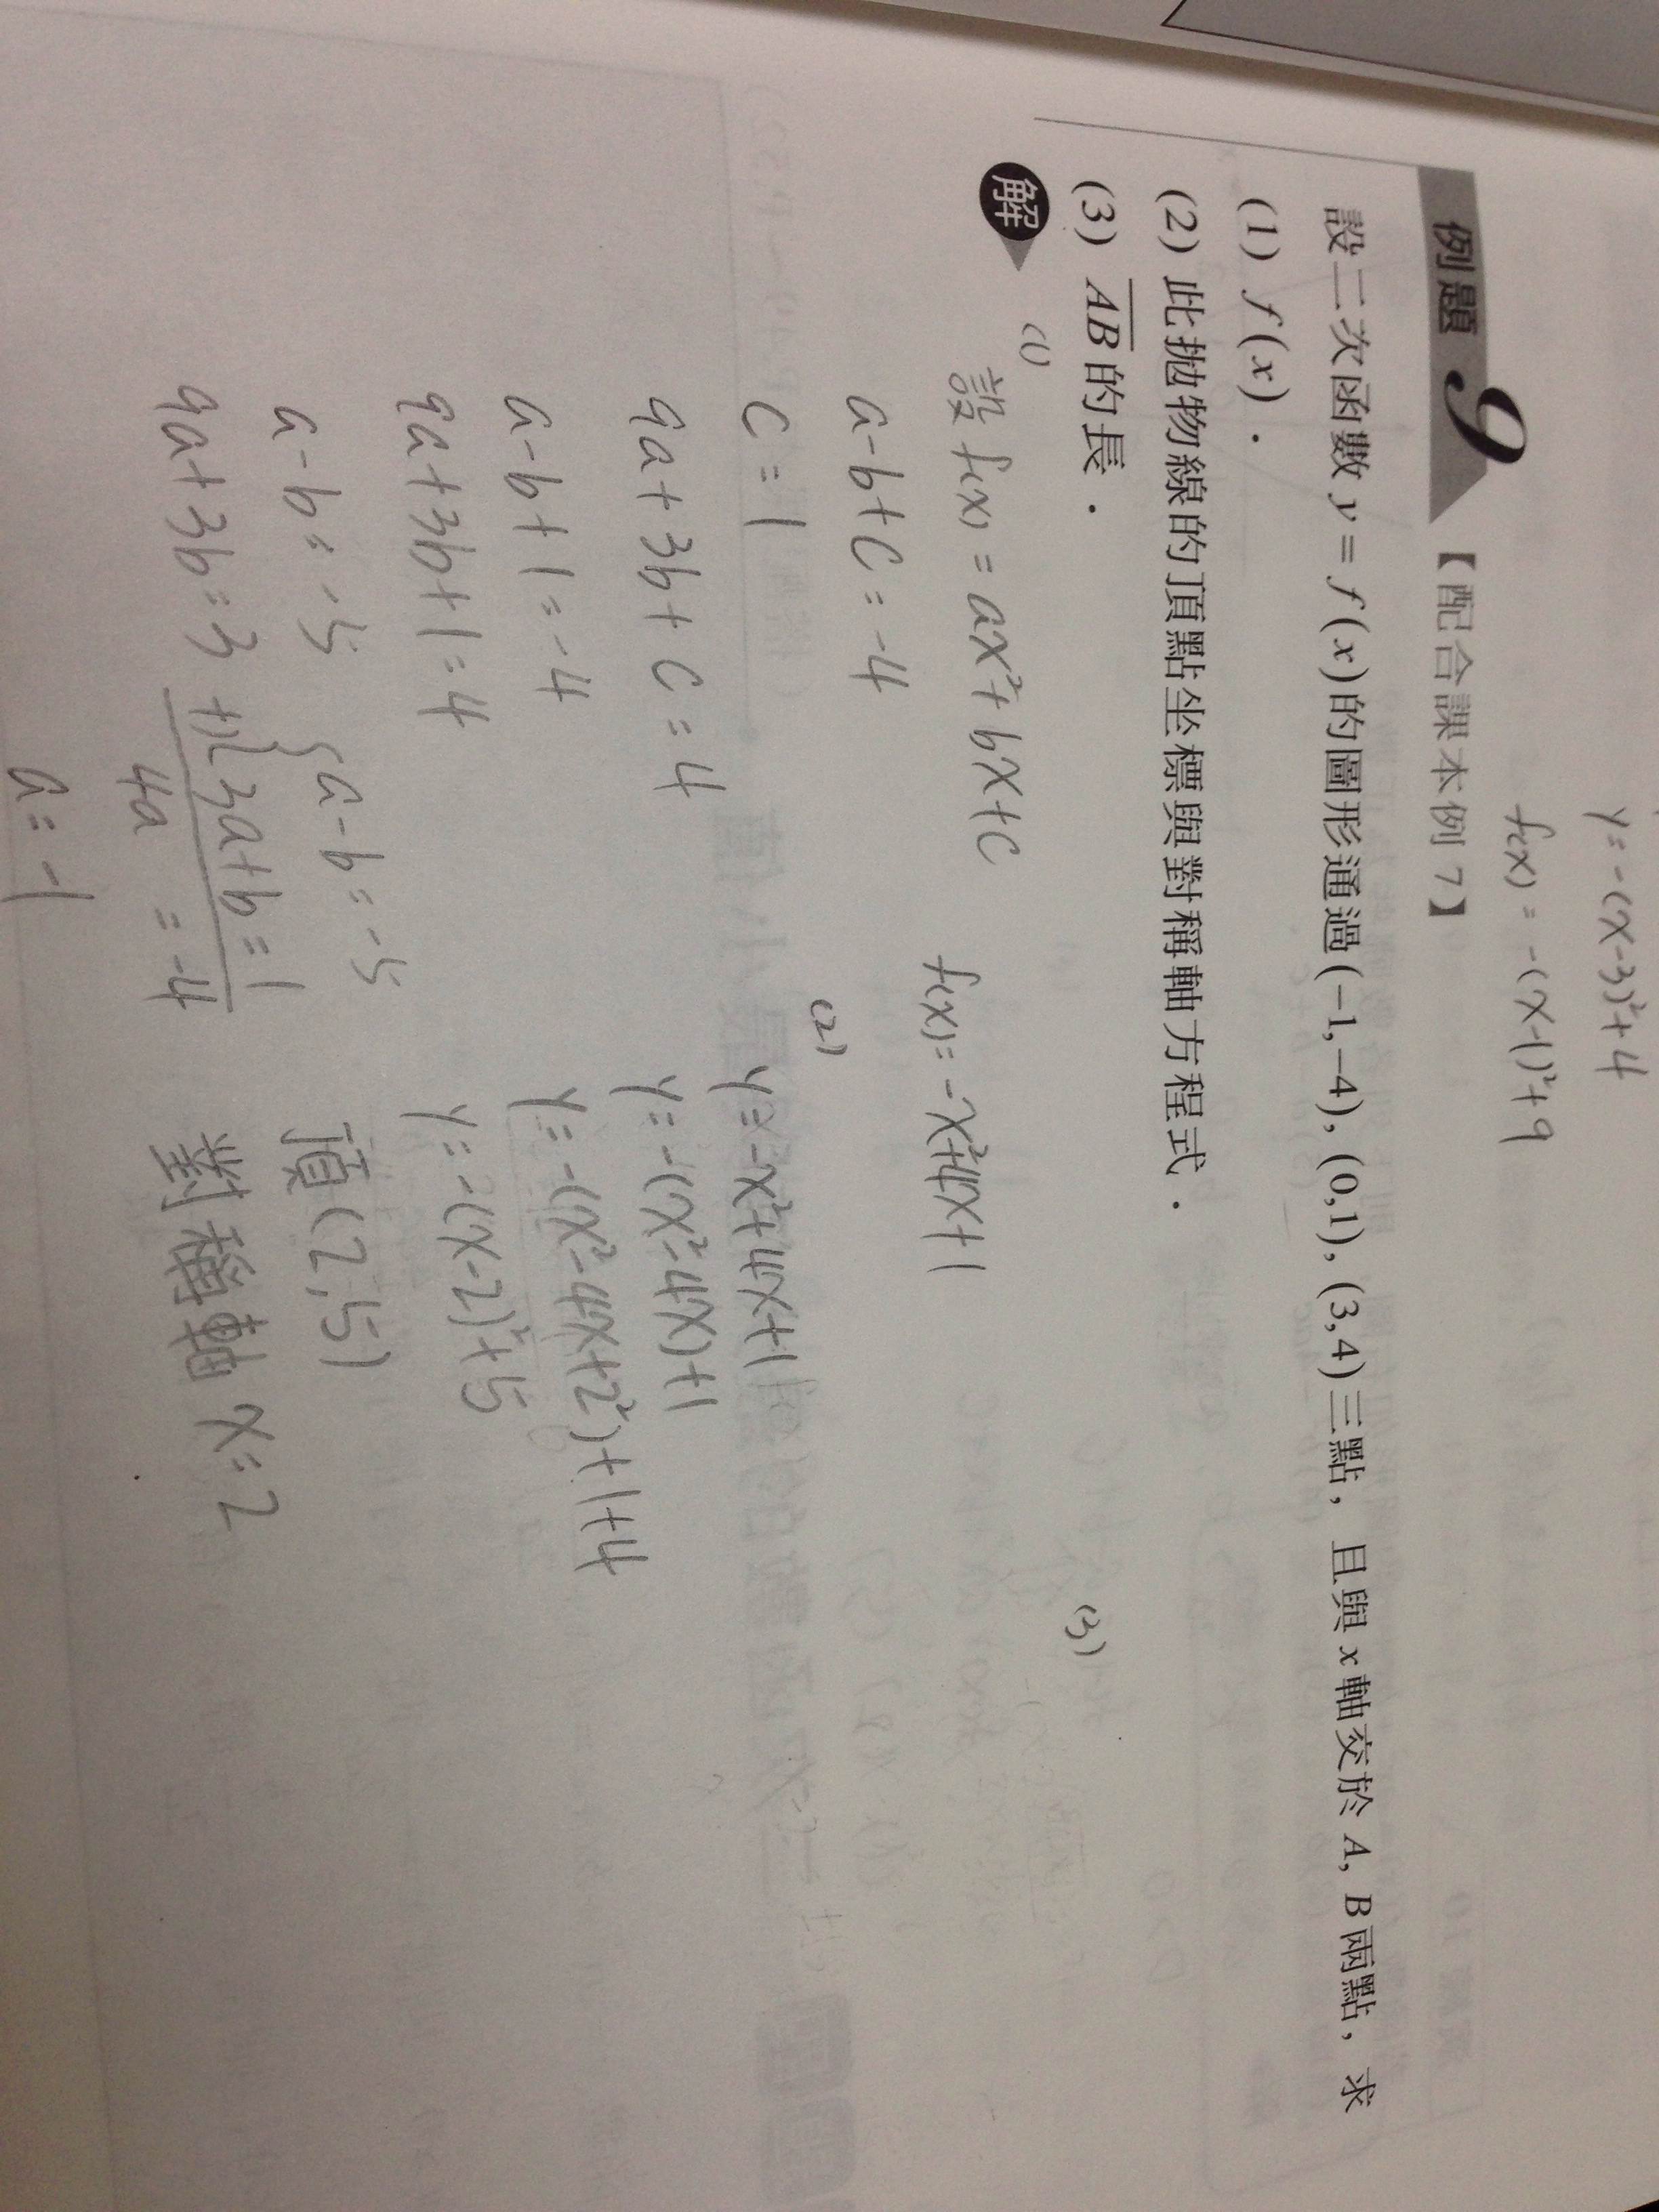 y=-(x-3)²+4
f(x)=-(x-1)²+9
例題 9 【配合課本例 7】
設二次函數 y = f(x)的圖形通過(-1,-4), (0,1), (3,4)三點，且與 x 軸交於 A, B 兩點，求
(1) f(x)．
(2) 此拋物線的頂點坐標與對稱軸方程式．
(3) AB的長．
解
(1)
設 f(x) = ax²+bx+c
a-b+c=-4
c=1
9a+3b+c=4
a-b+1=-4
9a+3b+1=4
a-b=-5
9a+3b=3
a-b=-5
+) 3a+b=1
4a =-4
a=-1
f(x)=-x²+4x+1
(2)
y=-x²+4x+1
y=-(x²-4x)+1
y=-(x²-4x+2²)+1+4
y=-(x-2)²+5
頂(2,5)
對稱軸 x=2
(3)